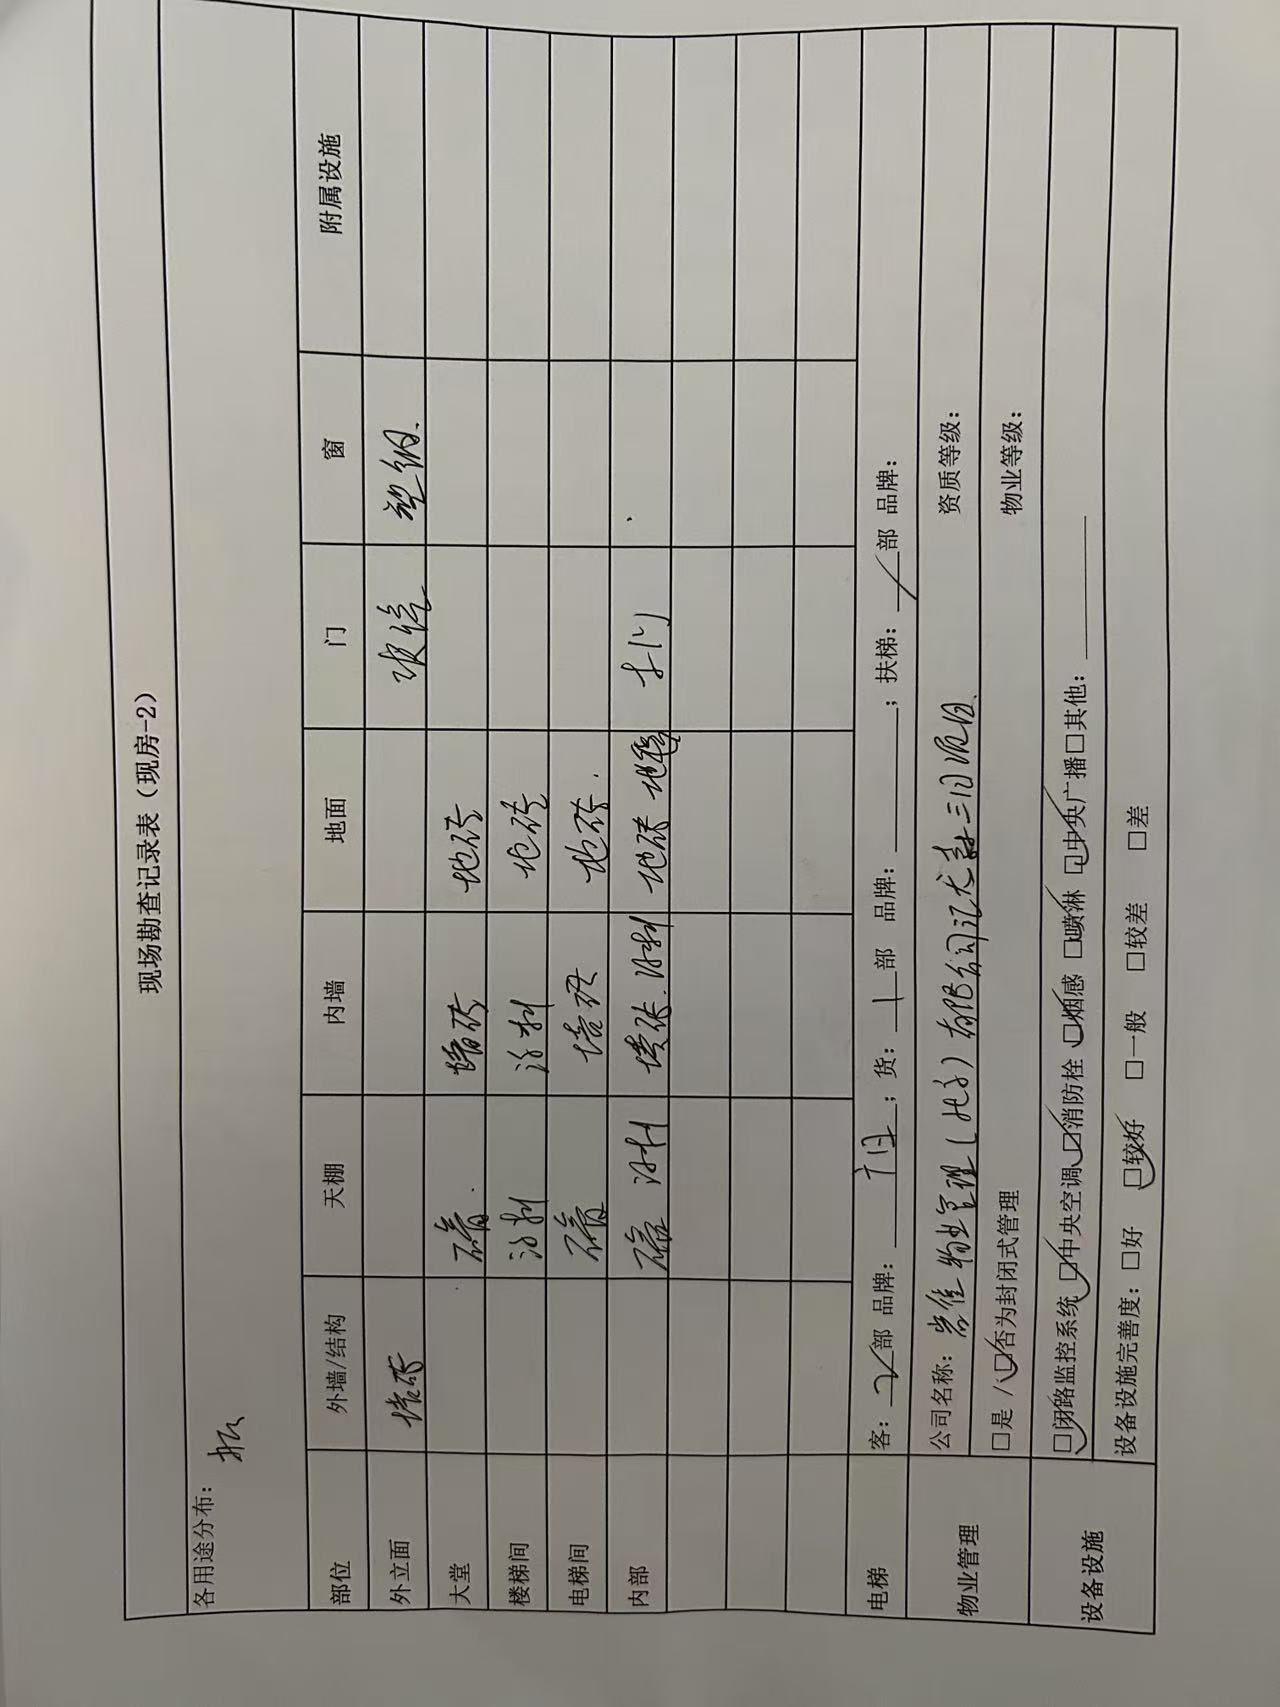 现场勘查记录表（现房-2）
各用途分布：
部位 外墙/结构 天棚 内墙 地面 门 窗 附属设施
外立面 墙砖 玻璃 塑钢.
大堂 石膏. 墙砖 地砖
楼梯间 涂料 涂料 地砖
电梯间 石膏 墙砖 地砖.
内部 石膏 涂料 墙砖.涂料 地砖 地毯 木门
电梯 客：2部 品牌： ；货：1部 品牌： ；扶梯：/部 品牌：
物业管理 公司名称： 物业管理（北京）有限公司 三 项目. 资质等级：
□是/☑否为封闭式管理 物业等级：
设备设施 ☑闭路监控系统☑中央空调☑消防栓☑烟感☑喷淋☑中央广播□其他：
设备设施完善度：□好 ☑较好 □一般 □较差 □差